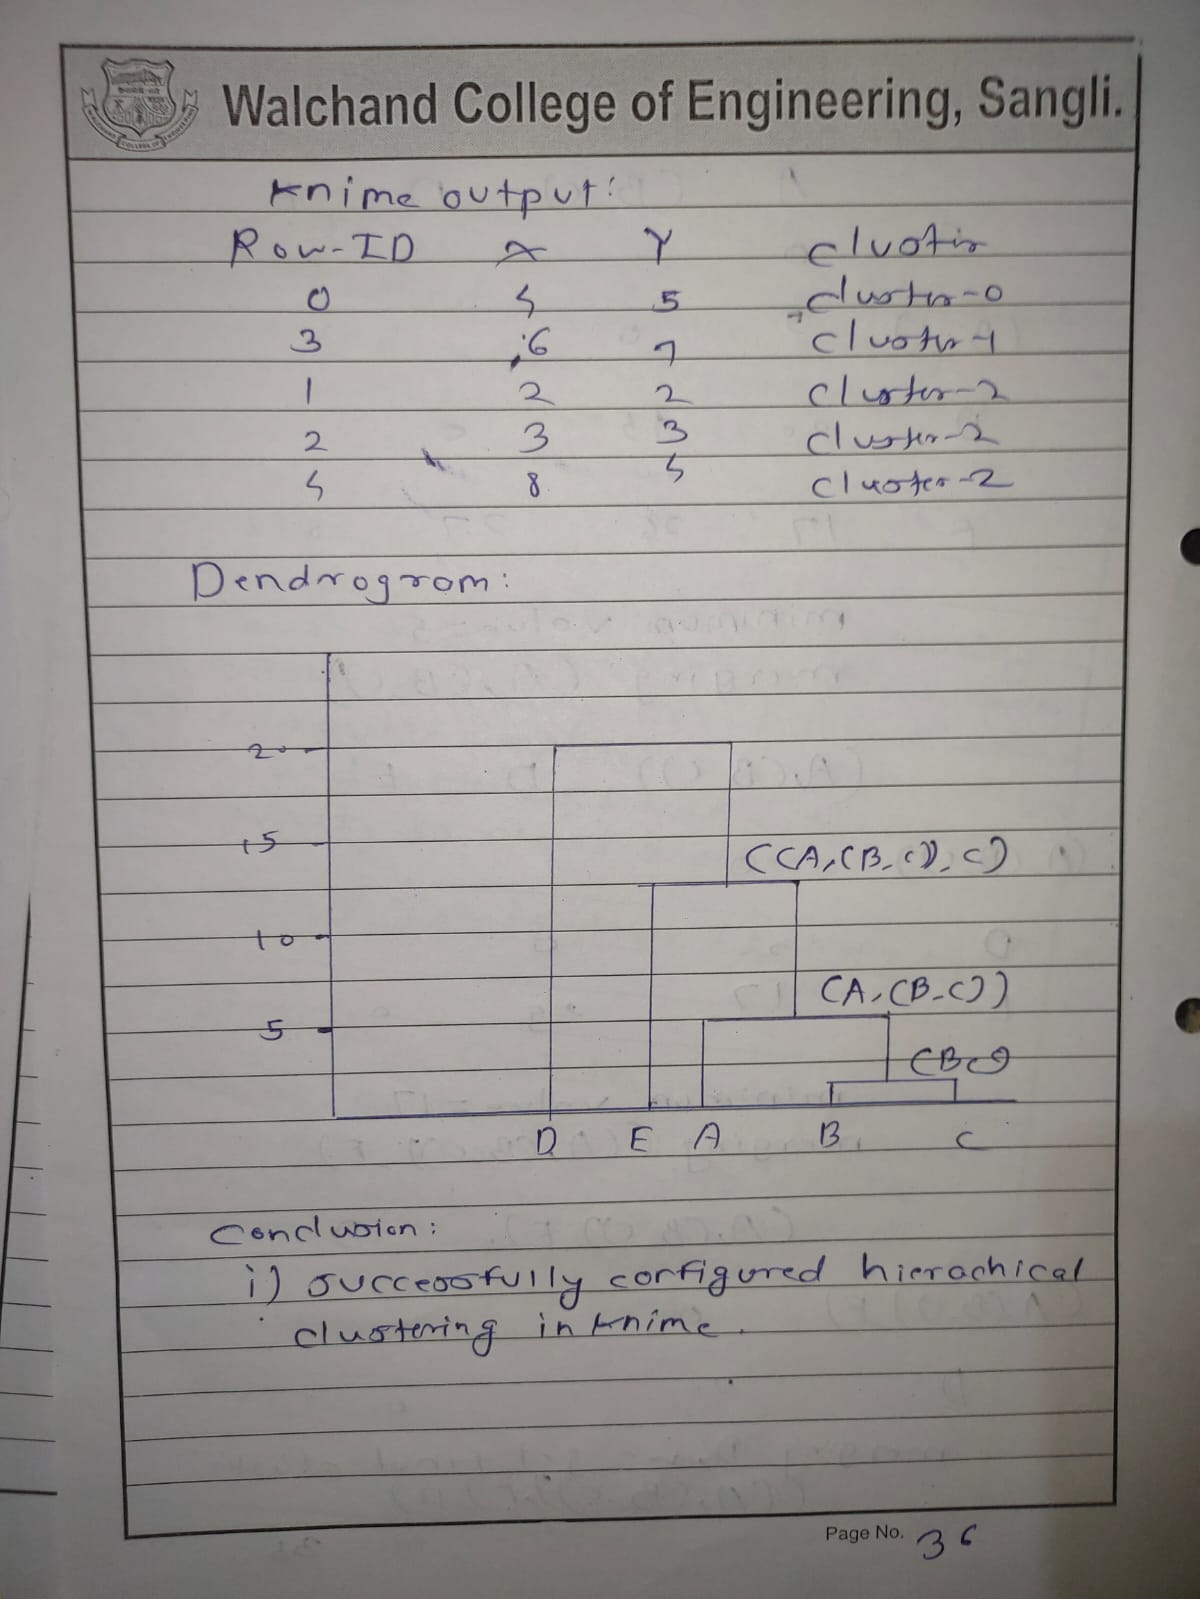 Walchand College of Engineering, Sangli.
Knime output:
Row-ID X Y cluster
0 4 5 cluster-0
3 6 7 cluster-1
1 2 2 cluster-2
2 3 3 cluster-2
4 8 4 cluster-2
Dendrogram:
20
15
((A,(B,C)),C)
10
(A,(B,C))
5
(B,C)
D E A B C
Conclusion:
i) successfully configured hierachical
clustering in knime.
Page No. 36